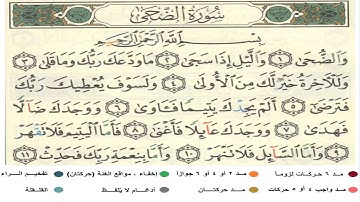 سُورَةُ الضُّحَىٰ
بِسْمِ اللَّهِ الرَّحْمَٰنِ الرَّحِيمِ
وَالضُّحَىٰ ١ وَاللَّيْلِ إِذَا سَجَىٰ ٢ مَا وَدَّعَكَ رَبُّكَ وَمَا قَلَىٰ ٣
وَلَلْآخِرَةُ خَيْرٌ لَّكَ مِنَ الْأُولَىٰ ٤ وَلَسَوْفَ يُعْطِيكَ رَبُّكَ
فَتَرْضَىٰ ٥ أَلَمْ يَجِدْكَ يَتِيمًا فَآوَىٰ ٦ وَوَجَدَكَ ضَالًّا
فَهَدَىٰ ٧ وَوَجَدَكَ عَائِلًا فَأَغْنَىٰ ٨ فَأَمَّا الْيَتِيمَ فَلَا تَقْهَرْ
٩ وَأَمَّا السَّائِلَ فَلَا تَنْهَرْ ١٠ وَأَمَّا بِنِعْمَةِ رَبِّكَ فَحَدِّثْ ١١
مد ٦ حركات لزوماً مد ٢ أو ٤ أو ٦ جوازاً إخفاء، مواقع الغنة (حركتان) تفخيم الراء
مد واجب ٤ أو ٥ حركات مد حركتان إدغام، ما لا يُلفظ القلقلة